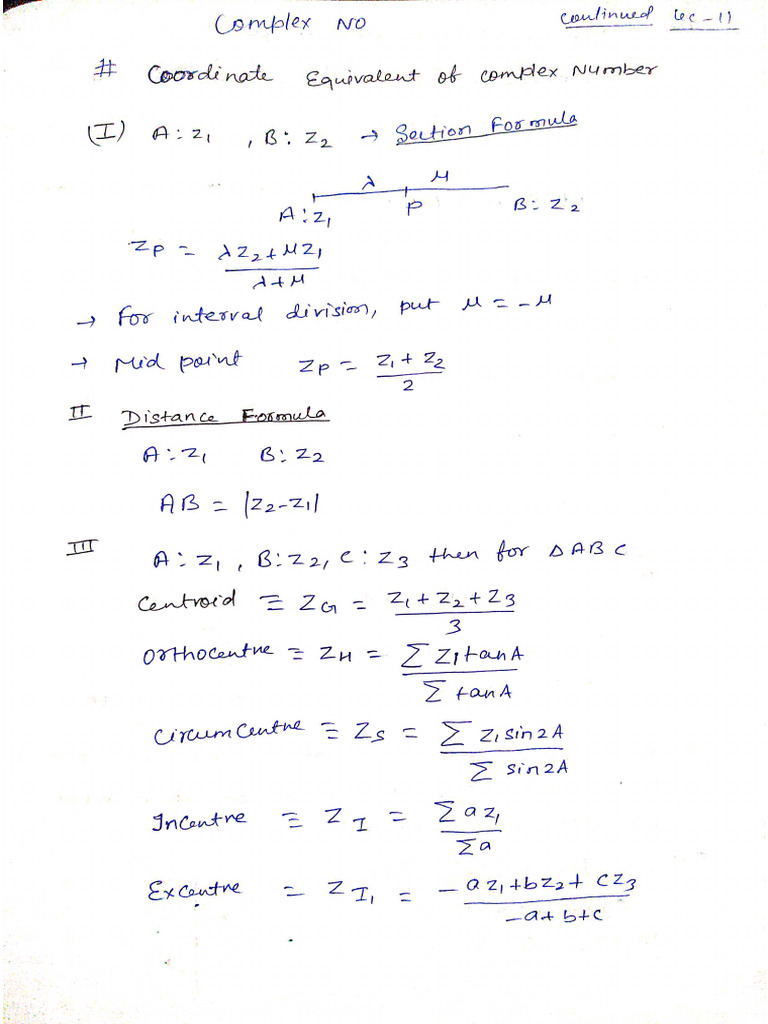 Complex No
Continued Lec-11
# Coordinate Equivalent of complex Number
(I) A: z₁ , B: z₂ → Section Formula
λ μ
A: z₁ P B: z₂
zₚ = (λz₂ + μz₁)/(λ+μ)
→ For interval division, put μ = -μ
→ Mid point zₚ = (z₁ + z₂)/2
II Distance Formula
A: z₁ B: z₂
AB = |z₂ - z₁|
III A: z₁ , B: z₂, C: z₃ then for Δ ABC
Centroid ≡ z_G = (z₁ + z₂ + z₃)/3
Orthocentre ≡ z_H = (Σ z₁ tan A)/(Σ tan A)
Circumcentre ≡ z_S = (Σ z₁ sin 2A)/(Σ sin 2A)
Incentre ≡ z_I = (Σ a z₁)/(Σ a)
Excentre = z_I₁ = (-a z₁ + b z₂ + c z₃)/(-a + b + c)